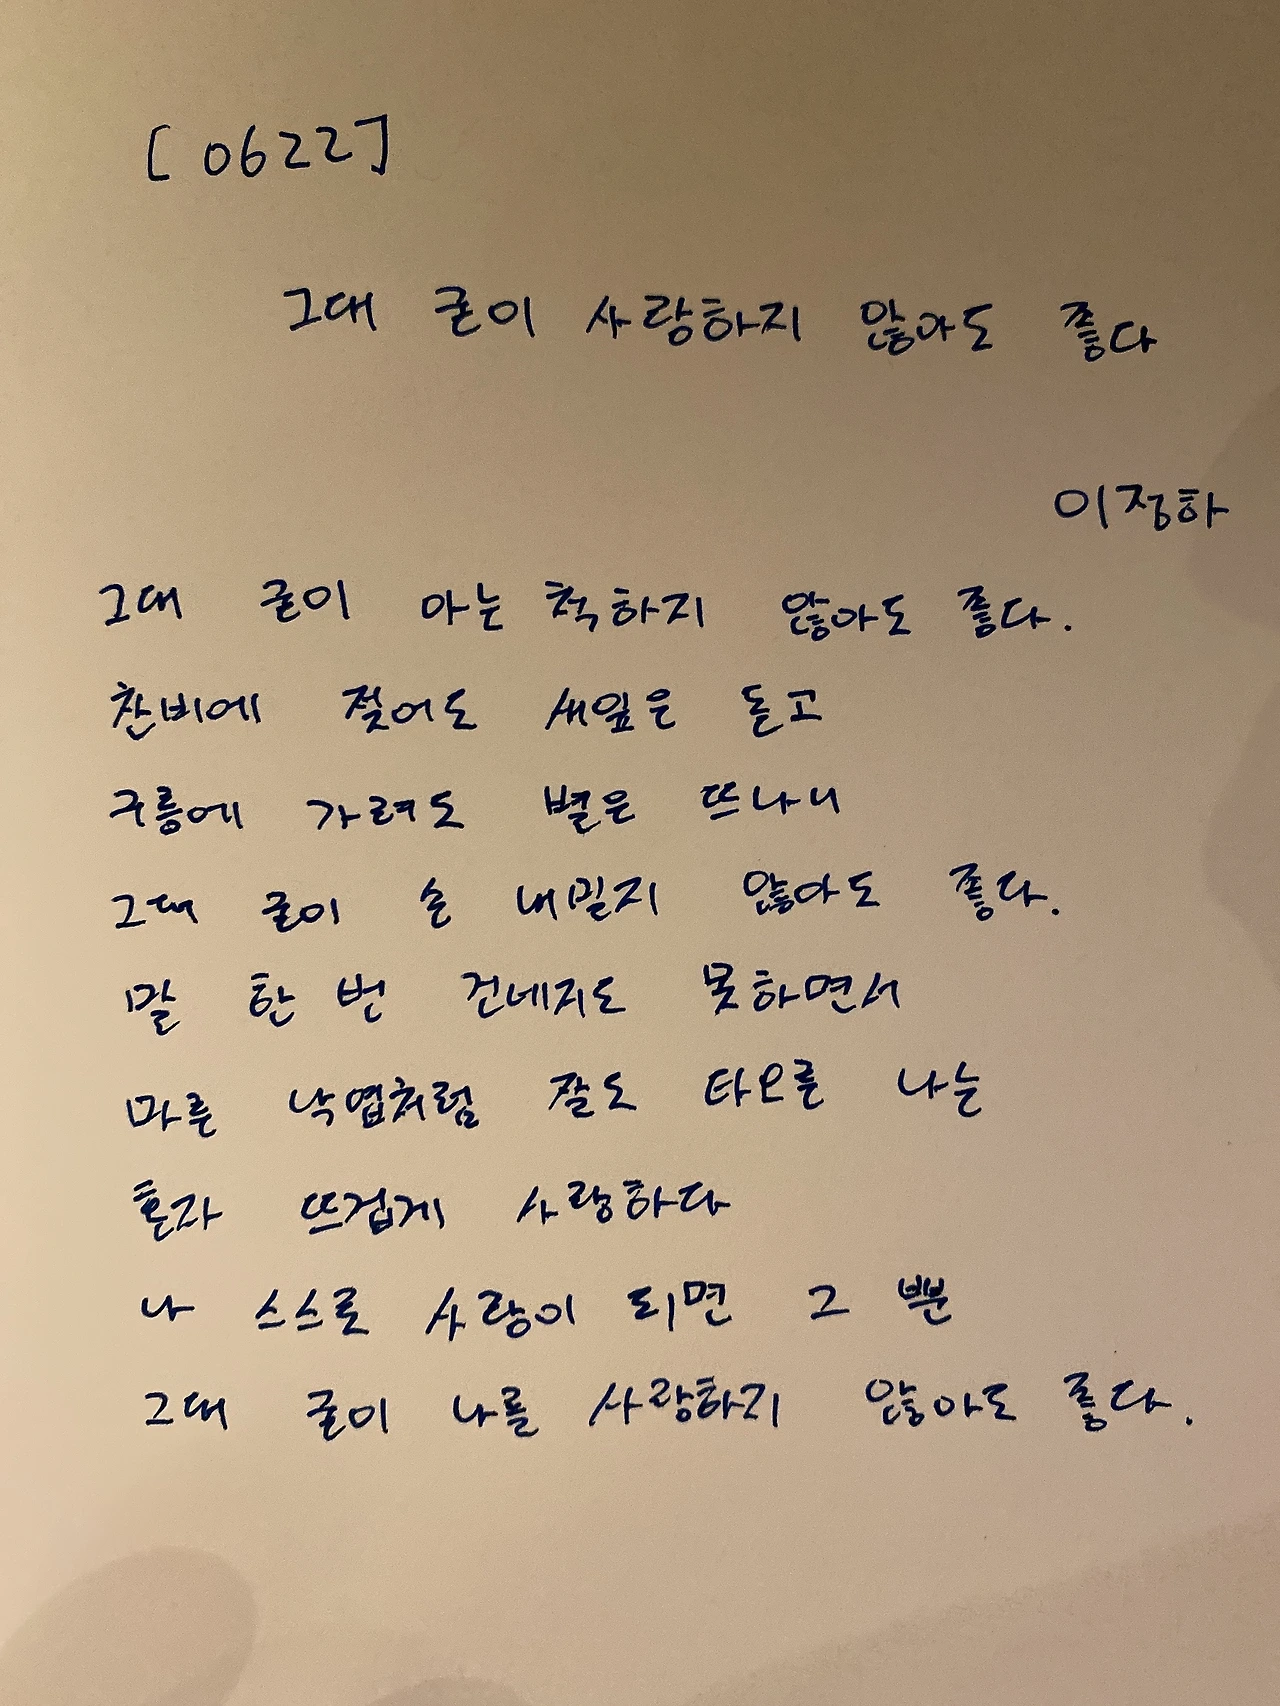 [0622]
그대 굳이 사랑하지 않아도 좋다
이정하
그대 굳이 아는 척하지 않아도 좋다.
찬비에 젖어도 새잎은 돋고
구름에 가려도 별은 뜨나니
그대 굳이 손 내밀지 않아도 좋다.
말 한 번 건네지도 못하면서
마른 낙엽처럼 잘도 타오른 나는
혼자 뜨겁게 사랑하다
나 스스로 사랑이 되면 그 뿐
그대 굳이 나를 사랑하지 않아도 좋다.